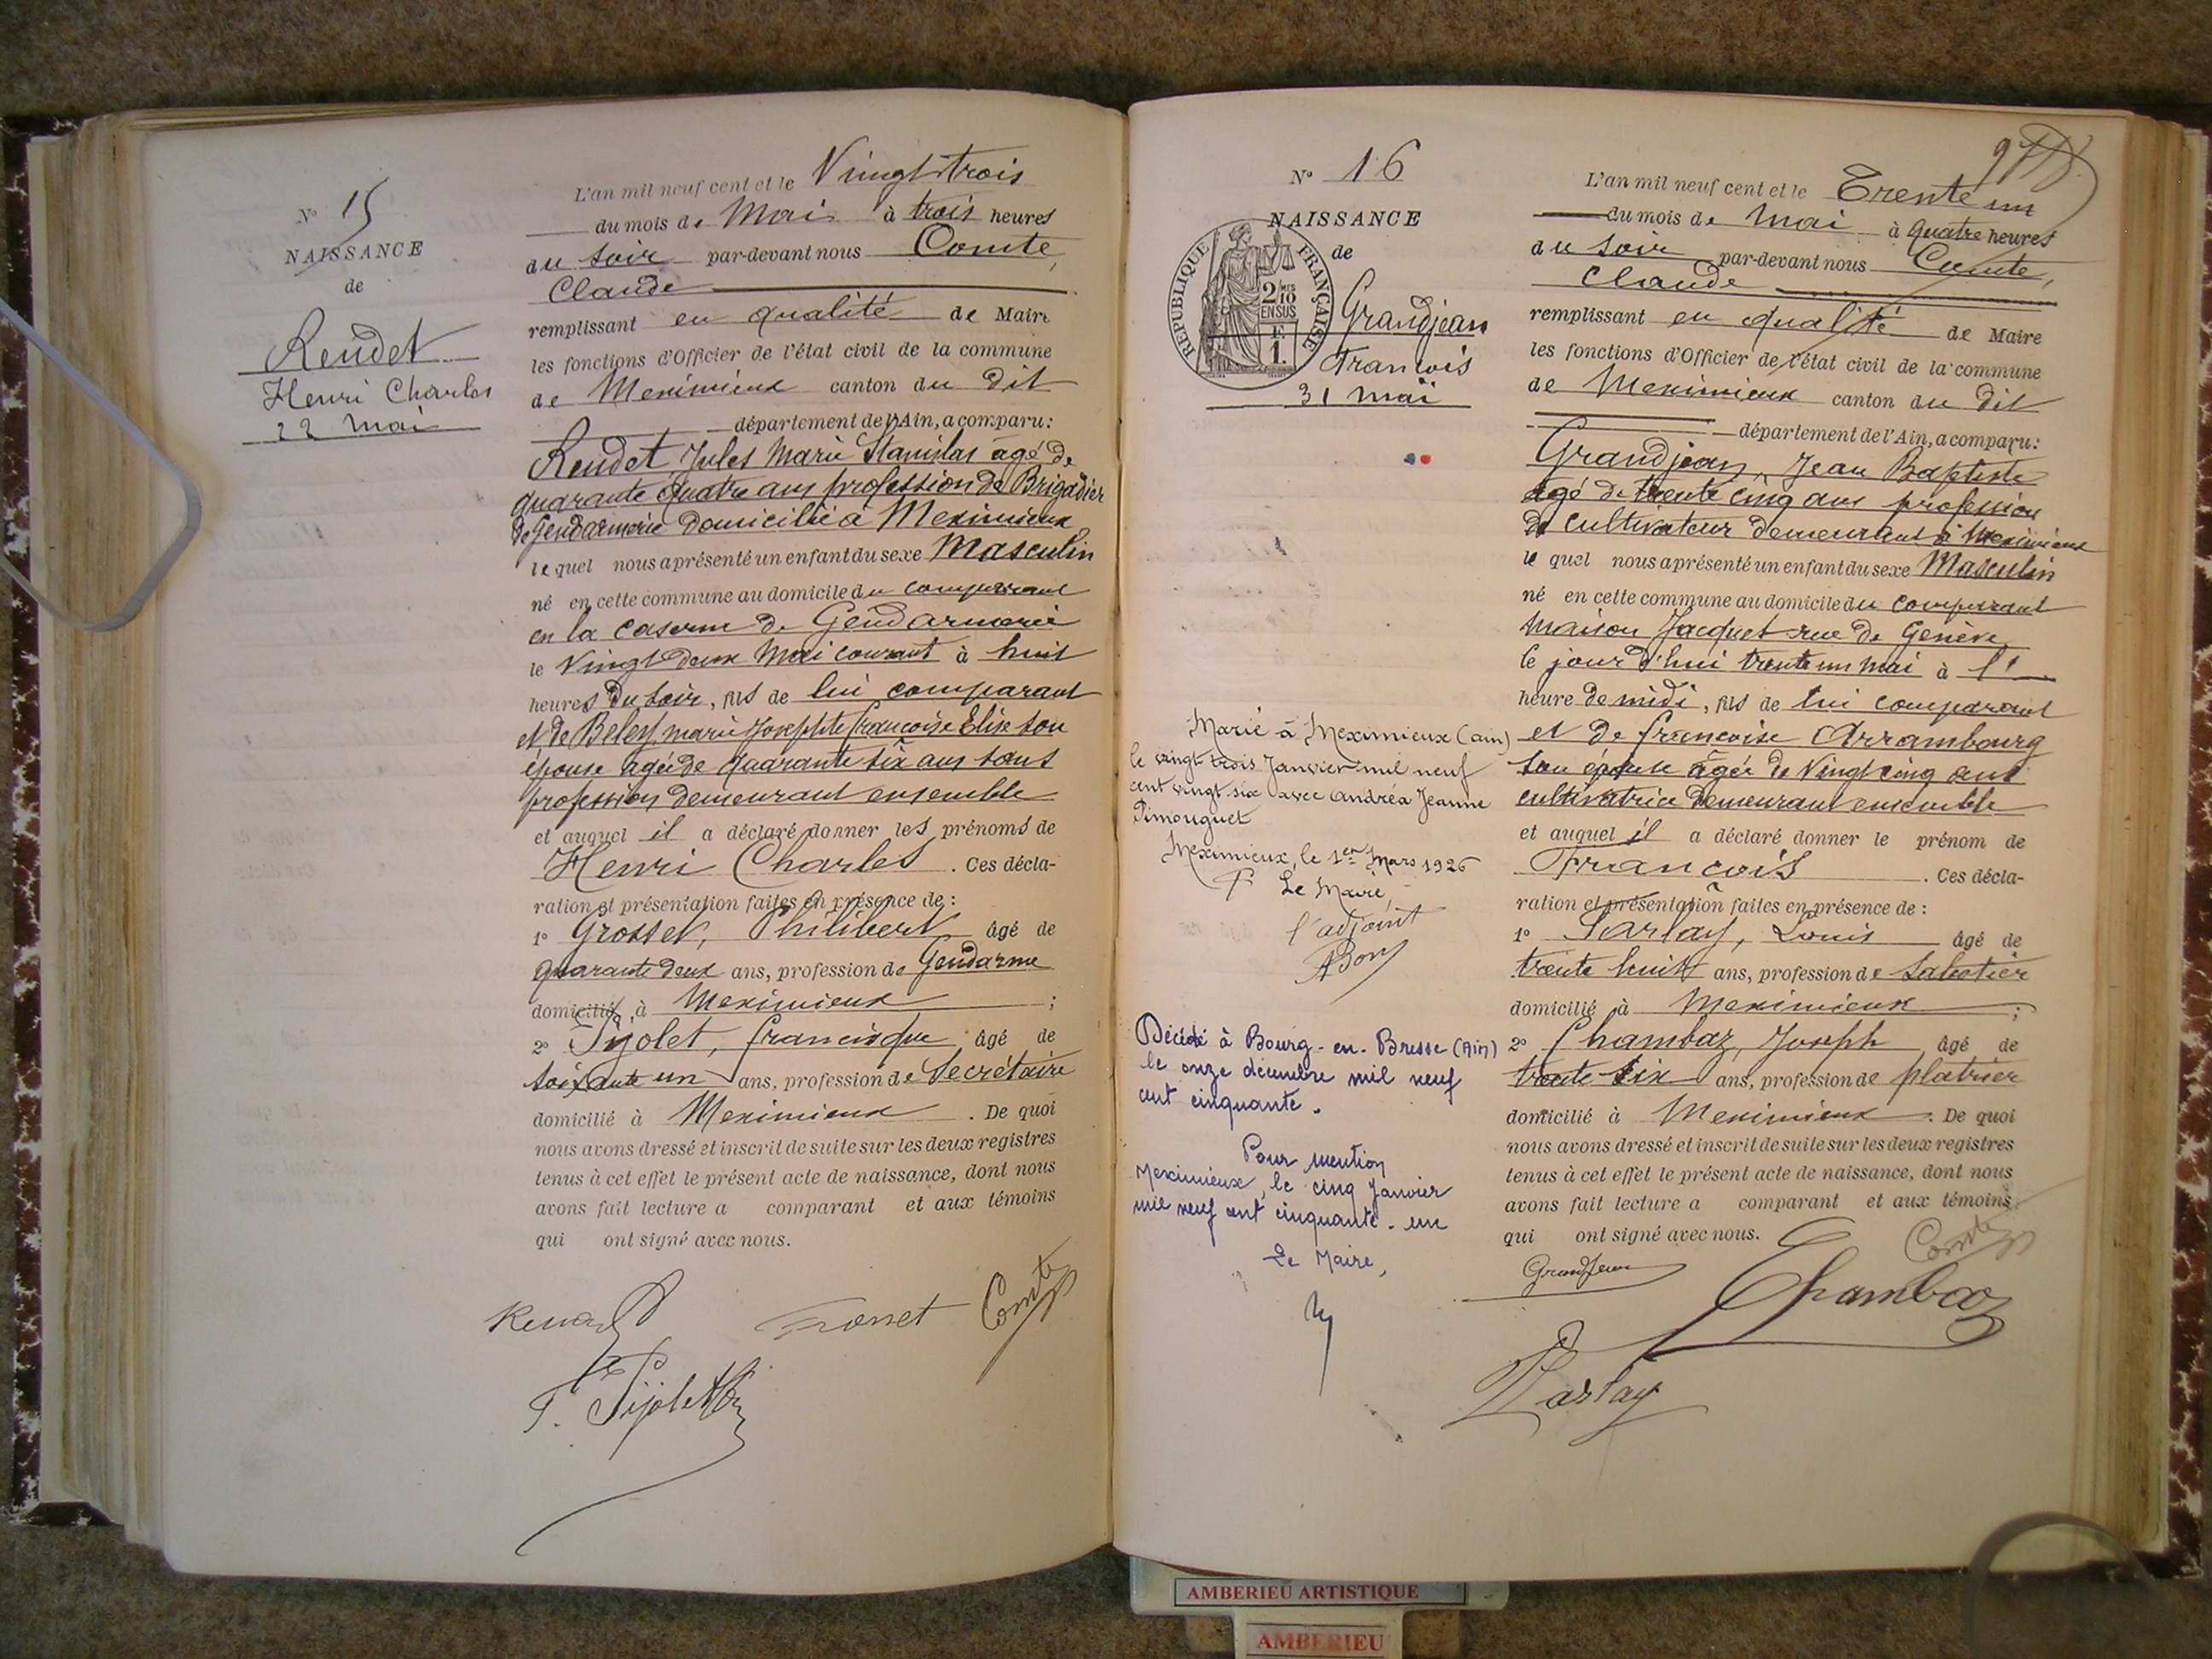 N° 15
NAISSANCE
de
Rendet
Henri Charles
22 mai
L'an mil neuf cent et le Vingt trois
du mois de Mai à trois heures
du soir par-devant nous Comte,
Claude
remplissant en qualité de Maire
les fonctions d'Officier de l'état civil de la commune
de Meximieux canton du dit
département de l'Ain, a comparu:
Rendet Jules Marie Stanislas agé de
quarante quatre ans profession de Brigadier
de Gendarmerie domicilié à Meximieux
lequel nous a présenté un enfant du sexe Masculin
né en cette commune au domicile du comparant
en la caserne de Gendarmerie
le Vingt deux Mai courant à huit
heures du soir, fils de lui comparant
et de Beley marie Josephte francoise Elise son
épouse agée de quarante six ans sans
profession demeurant ensemble
et auquel il a déclaré donner les prénoms de
Henri Charles . Ces décla-
ration et présentation faites en présence de :
1° Grosset, Philibert âgé de
quarante deux ans, profession de Gendarme
domicilié à Meximieux ;
2° Pijolet, francisque âgé de
soixante un ans, profession de Secrétaire
domicilié à Meximieux . De quoi
nous avons dressé et inscrit de suite sur les deux registres
tenus à cet effet le présent acte de naissance, dont nous
avons fait lecture a comparant et aux témoins
qui ont signé avec nous.
Grosset Comte
F. Pijolet
N° 16
NAISSANCE
de
RÉPUBLIQUE FRANÇAISE
2/10 MES
EN SUS
F.
1.
Grandjean
Francois
31 mai
L'an mil neuf cent et le Trente un
du mois de Mai à quatre heures
du soir par-devant nous Comte,
Claude
remplissant en qualité de Maire
les fonctions d'Officier de l'état civil de la commune
de Meximieux canton du dit
département de l'Ain, a comparu:
Grandjean, Jean Baptiste
agé de trente cinq ans profession
de cultivateur demeurant à Meximieux
lequel nous a présenté un enfant du sexe Masculin
né en cette commune au domicile du comparant
Maison Jacquet rue de Genève
le jour d'hui trente un mai à l'
heure de midi, fils de lui comparant
et de francoise Arrambourg
son épouse agée de Vingt cinq ans
cultivatrice demeurant ensemble
et auquel il a déclaré donner le prénom de
Francois . Ces décla-
ration et présentation faites en présence de :
1° Sarlay, Louis âgé de
trente huit ans, profession de Sabotier
domicilié à Meximieux ;
2° Chambaz, Joseph âgé de
trente six ans, profession de platrier
domicilié à Meximieux . De quoi
nous avons dressé et inscrit de suite sur les deux registres
tenus à cet effet le présent acte de naissance, dont nous
avons fait lecture a comparant et aux témoins
qui ont signé avec nous.
Grandjean Comte
Chambaz
Sarlay
Marié à Meximieux (Ain)
le vingt trois Janvier mil neuf
cent vingt six avec Andréa Jeanne
Pimouguet
Meximieux, le 1er Mars 1926
P Le Maire,
l'adjoint
Décédé à Bourg-en-Bresse (Ain)
le onze décembre mil neuf
cent cinquante.
Pour mention
Meximieux, le cinq Janvier
mil neuf cent cinquante-un
Le Maire,
AMBERIEU ARTISTIQUE
AMBERIEU